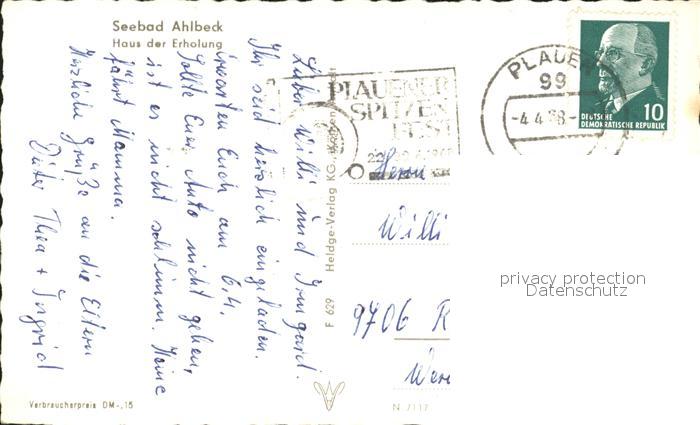 Seebad Ahlbeck
Haus der Erholung
Lieber Willi und Irmgard.
Ihr seid herzlich eingeladen.
Erwarten Euch am 6.4.
Sollte Euer Auto nicht gehen,
ist es nicht schlimm. Heine
fährt Mamma.
Herzliche Grüße an die Eltern
Dieter Thea + Ingrid
Verbraucherpreis DM -,15
F 629 Heldge-Verlag KG.
PLAUENER
SPITZEN
FEST
PLAUEN
99
-4.4.68-
10
DEUTSCHE
DEMOKRATISCHE REPUBLIK
Herrn
Willi
9706 R
N 7117
privacy protection
Datenschutz